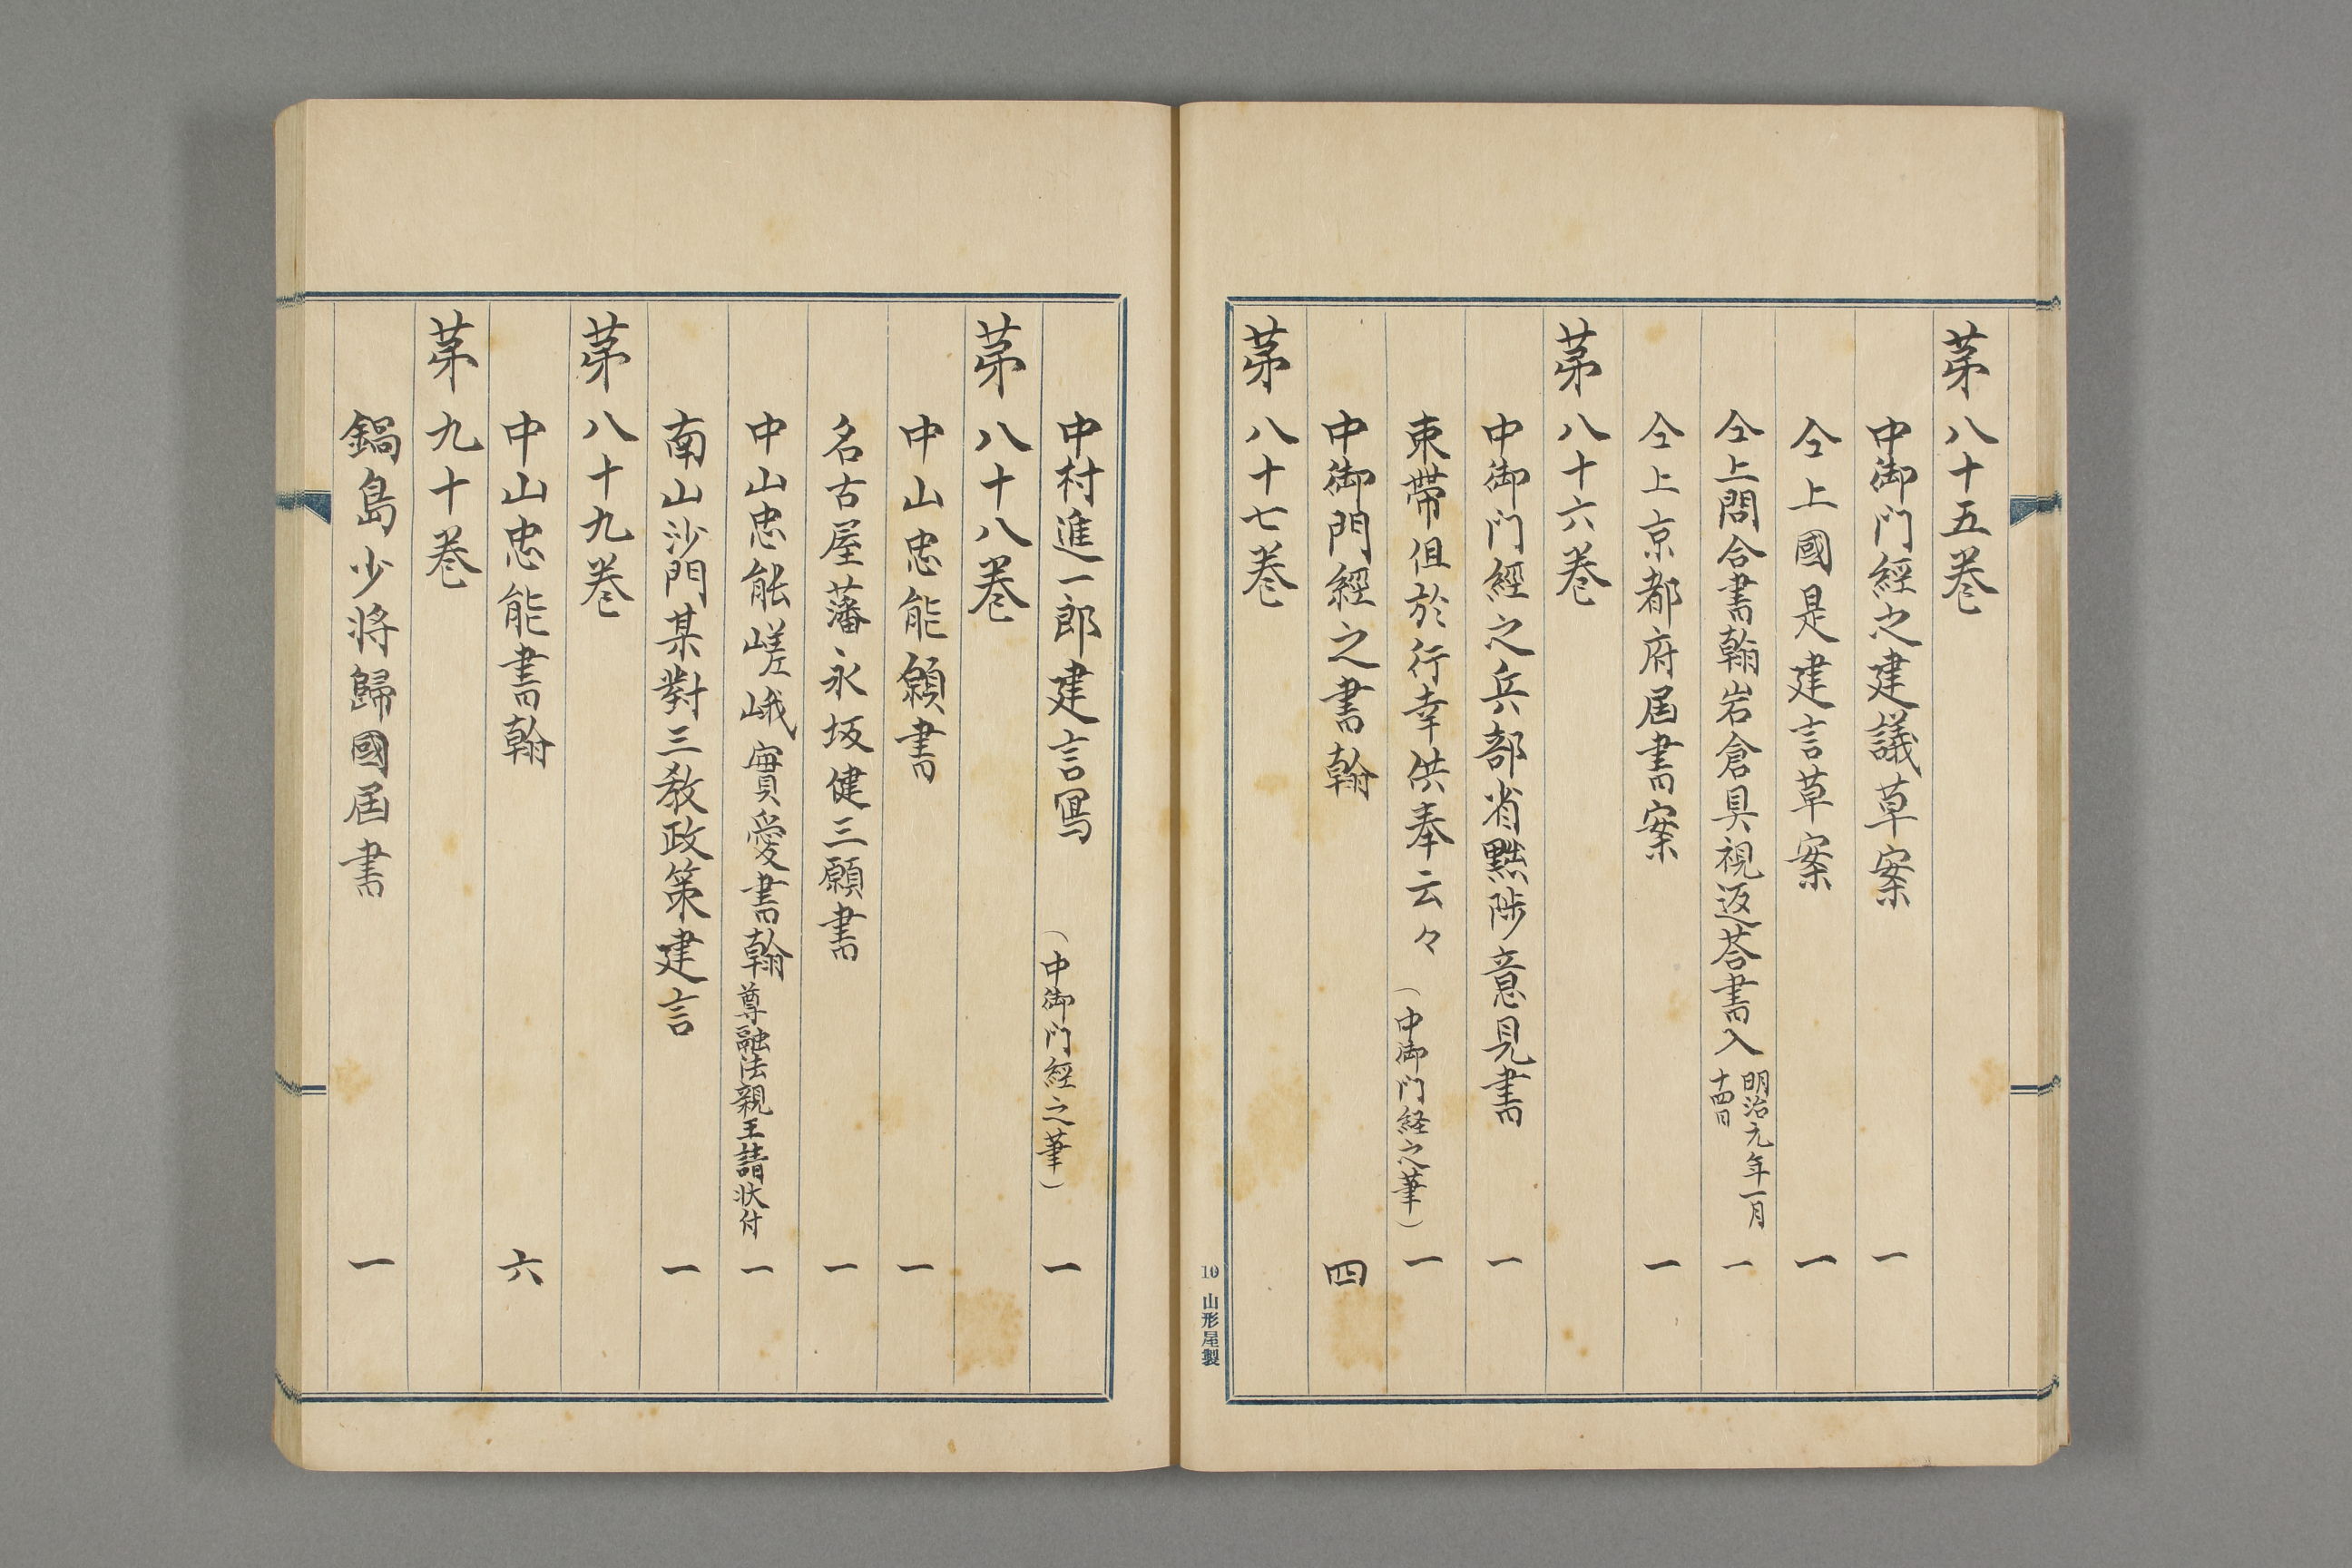 第八十五巻
中御門經之建議草案 一
仝上國是建言草案 一
仝上問合書翰岩倉具視返荅書入 明治元年一月十四日 一
仝上京都府屆書案 一
第八十六巻
中御門經之兵部省黜陟意見書 一
束帶但於行幸供奉云々 (中御門経之筆) 一
中御門經之書翰 四
第八十七巻
10 山形屋製
中村進一郎建言寫 (中御門経之筆) 一
第八十八巻
中山忠能願書 一
名古屋藩永坂健三願書 一
中山忠能嵯峨實愛書翰 尊融法親王請状付 一
南山沙門某對三教政策建言 一
第八十九巻
中山忠能書翰 六
第九十巻
鍋島少将歸國屆書 一